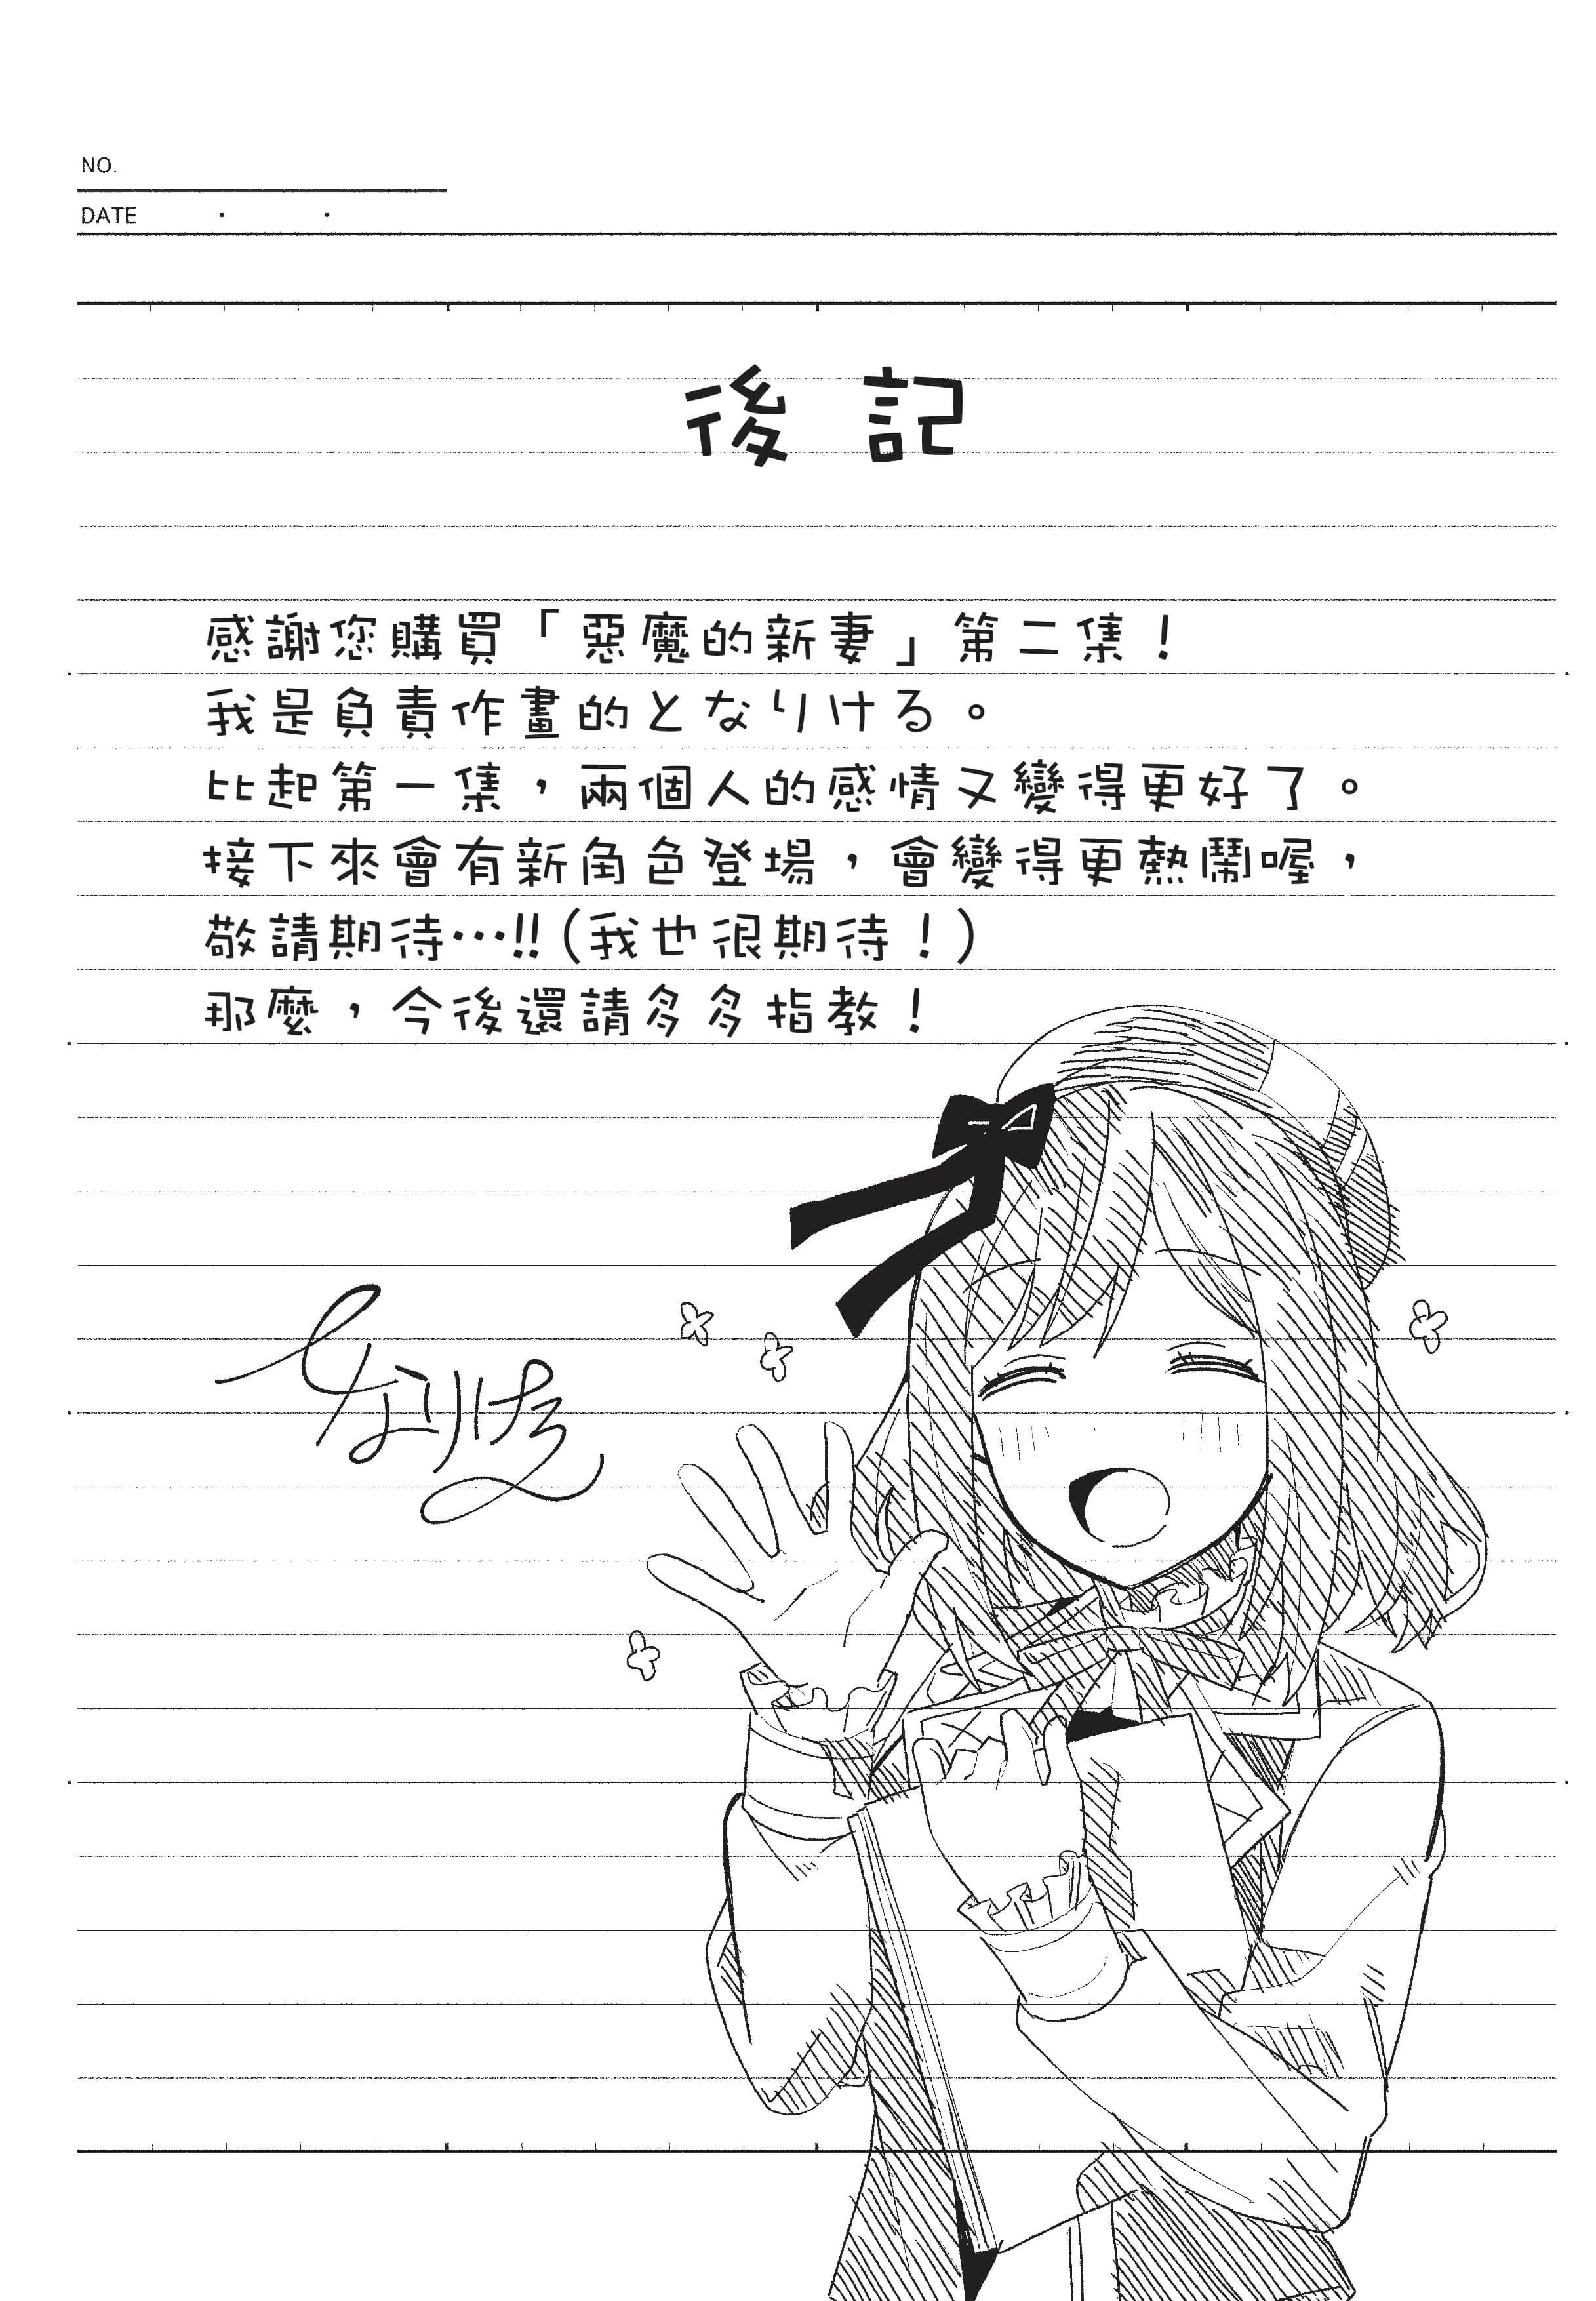 NO.
DATE . .
後記
感謝您購買「惡魔的新妻」第二集！
我是負責作畫的となりける。
比起第一集，兩個人的感情又變得更好了。
接下來會有新角色登場，會變得更熱鬧喔，
敬請期待…!!(我也很期待！)
那麼，今後還請多多指教！
となりける